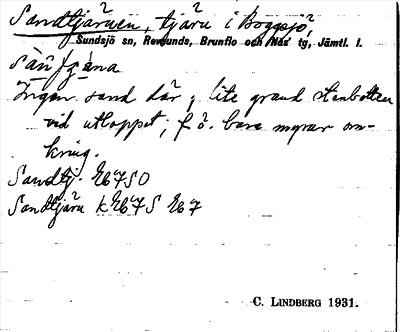 Sandtjärnen, tjärn i Boggsjö,
Sundsjö sn, Revsunds, Brunflo och Näs' tg, Jämtl. l.
Ingen sand där; lite grand stenbotten
vid utloppet, f. ö. bara myrar om-
kring.
Sandtj.
Sandtjärn
C. LINDBERG 1931.